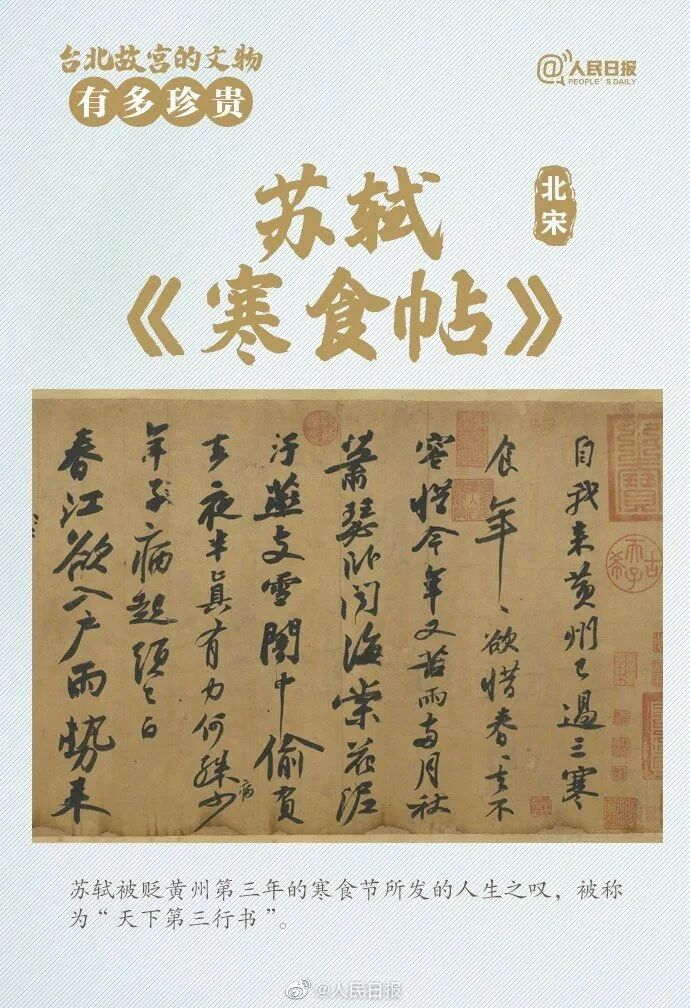 台北故宫的文物
有多珍贵
@人民日报
PEOPLE'S DAILY
苏轼
北宋
《寒食帖》
自我来黄州已過三寒
食年〻欲惜春〻去不
容惜今年又苦雨两月秋
蕭瑟卧闻海棠花泥
汙燕支雪闇中偷負
去夜半真有力何殊少
病
年子病起须已白
春江欲入户雨势来
古希天子
苏轼被贬黄州第三年的寒食节所发的人生之叹，被称
为“天下第三行书”。
@人民日报